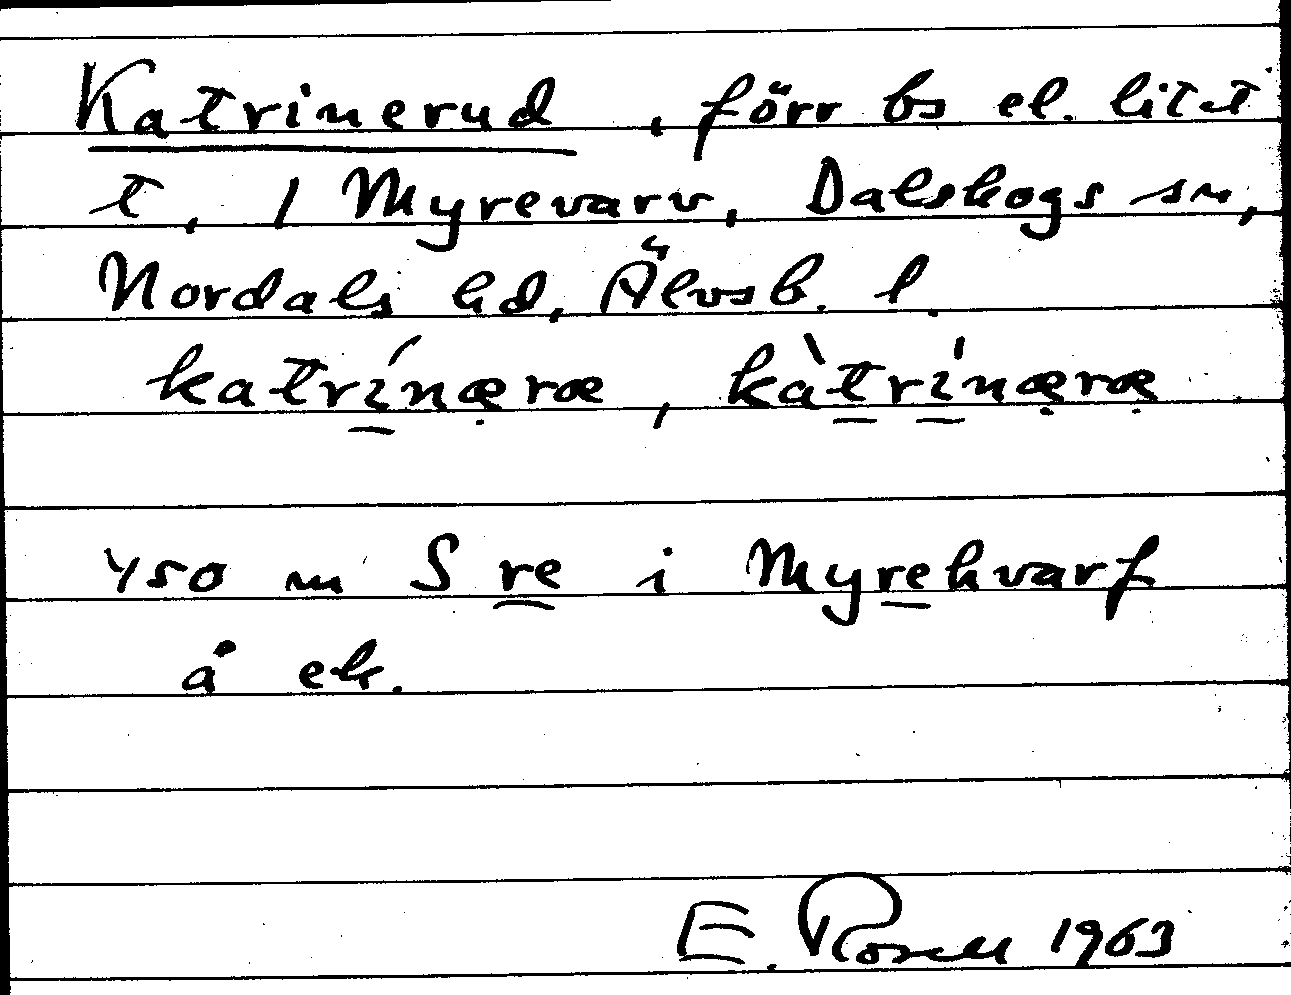 Katrinerud, förr bs el. litet
t, 1 Myrevarv, Dalskogs sn,
Nordals hd, Älvsb. l.
katrínærœ, kàtri̍nærœ
450 m S re i Myrehvarf
å ek.
E. Rosell 1963